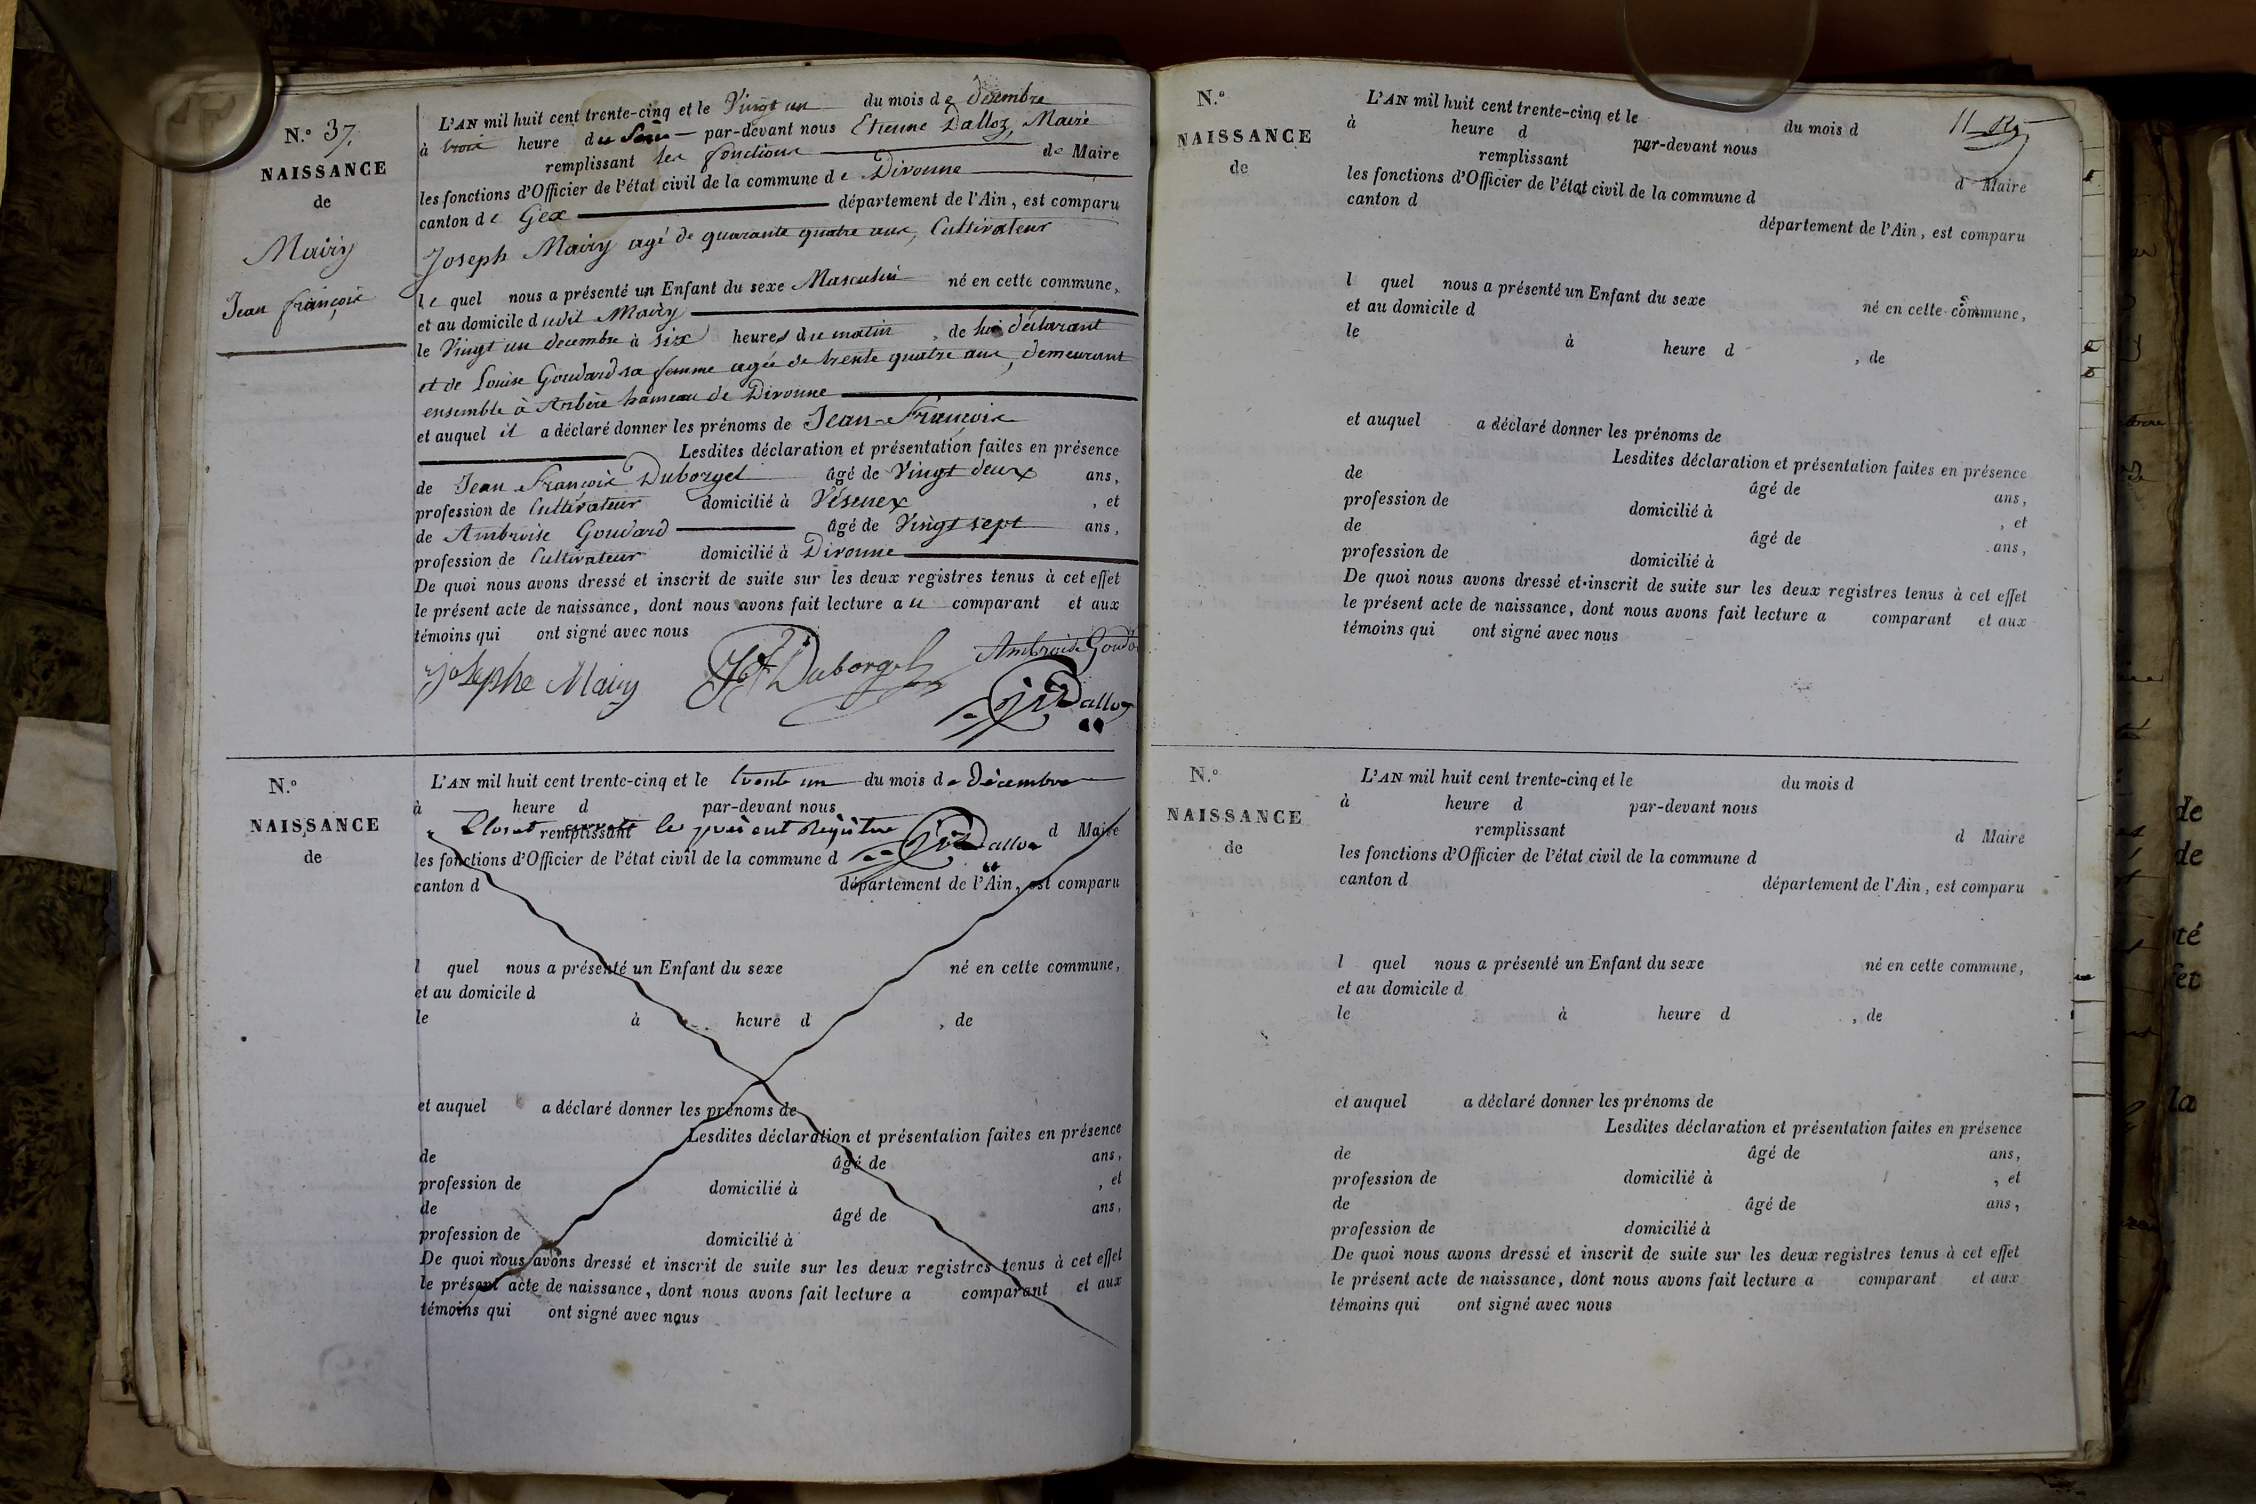 N.° 37.
NAISSANCE
de
Mairy
Jean françois
L'AN mil huit cent trente-cinq et le Vingt un du mois de décembre
à trois heure du Soir par-devant nous Etienne Dalloz, Maire
remplissant les fonctions de Maire
les fonctions d'Officier de l'état civil de la commune de Divonne
canton de Gex département de l'Ain, est comparu
Joseph Mairy agé de quarante quatre ans, Cultivateur
le quel nous a présenté un Enfant du sexe Masculin né en cette commune,
et au domicile dudit Mairy
le Vingt un decembre à six heures du matin, de lui déclarant
et de Louise Goudard sa femme agée de trente quatre ans, demeurant
ensemble à Arbère hameau de Divonne
et auquel il a déclaré donner les prénoms de Jean-François
Lesdites déclaration et présentation faites en présence
de Jean François Duborgel âgé de Vingt deux ans,
profession de Cultivateur domicilié à Vésenex, et
de Ambroise Goudard âgé de Vingt sept ans,
profession de Cultivateur domicilié à Divonne
De quoi nous avons dressé et inscrit de suite sur les deux registres tenus à cet effet
le présent acte de naissance, dont nous avons fait lecture au comparant et aux
témoins qui ont signé avec nous
josephe Mairy JF Duborgel Ambroise
Dalloz
N.°
NAISSANCE
de
L'AN mil huit cent trente-cinq et le trente un du mois de Décembre
à heure d par-devant nous
Clos et arreté le présent Régistre
remplissant Dalloz d Maire
les fonctions d'Officier de l'état civil de la commune d
canton d département de l'Ain, est comparu
l quel nous a présenté un Enfant du sexe né en cette commune,
et au domicile d
le à heure d , de
et auquel a déclaré donner les prénoms de
Lesdites déclaration et présentation faites en présence
de âgé de ans,
profession de domicilié à , et
de âgé de ans,
profession de domicilié à
De quoi nous avons dressé et inscrit de suite sur les deux registres tenus à cet effet
le présent acte de naissance, dont nous avons fait lecture a comparant et aux
témoins qui ont signé avec nous
N.°
NAISSANCE
de
L'AN mil huit cent trente-cinq et le du mois d
11
à heure d par-devant nous
remplissant d Maire
les fonctions d'Officier de l'état civil de la commune d
canton d département de l'Ain, est comparu
l quel nous a présenté un Enfant du sexe né en cette commune,
et au domicile d
le à heure d , de
et auquel a déclaré donner les prénoms de
Lesdites déclaration et présentation faites en présence
de âgé de ans,
profession de domicilié à , et
de âgé de ans,
profession de domicilié à
De quoi nous avons dressé et inscrit de suite sur les deux registres tenus à cet effet
le présent acte de naissance, dont nous avons fait lecture a comparant et aux
témoins qui ont signé avec nous
N.°
NAISSANCE
de
L'AN mil huit cent trente-cinq et le du mois d
à heure d par-devant nous
remplissant d Maire
les fonctions d'Officier de l'état civil de la commune d
canton d département de l'Ain, est comparu
l quel nous a présenté un Enfant du sexe né en cette commune,
et au domicile d
le à heure d , de
et auquel a déclaré donner les prénoms de
Lesdites déclaration et présentation faites en présence
de âgé de ans,
profession de domicilié à , et
de âgé de ans,
profession de domicilié à
De quoi nous avons dressé et inscrit de suite sur les deux registres tenus à cet effet
le présent acte de naissance, dont nous avons fait lecture a comparant et aux
témoins qui ont signé avec nous
de
de
té
la